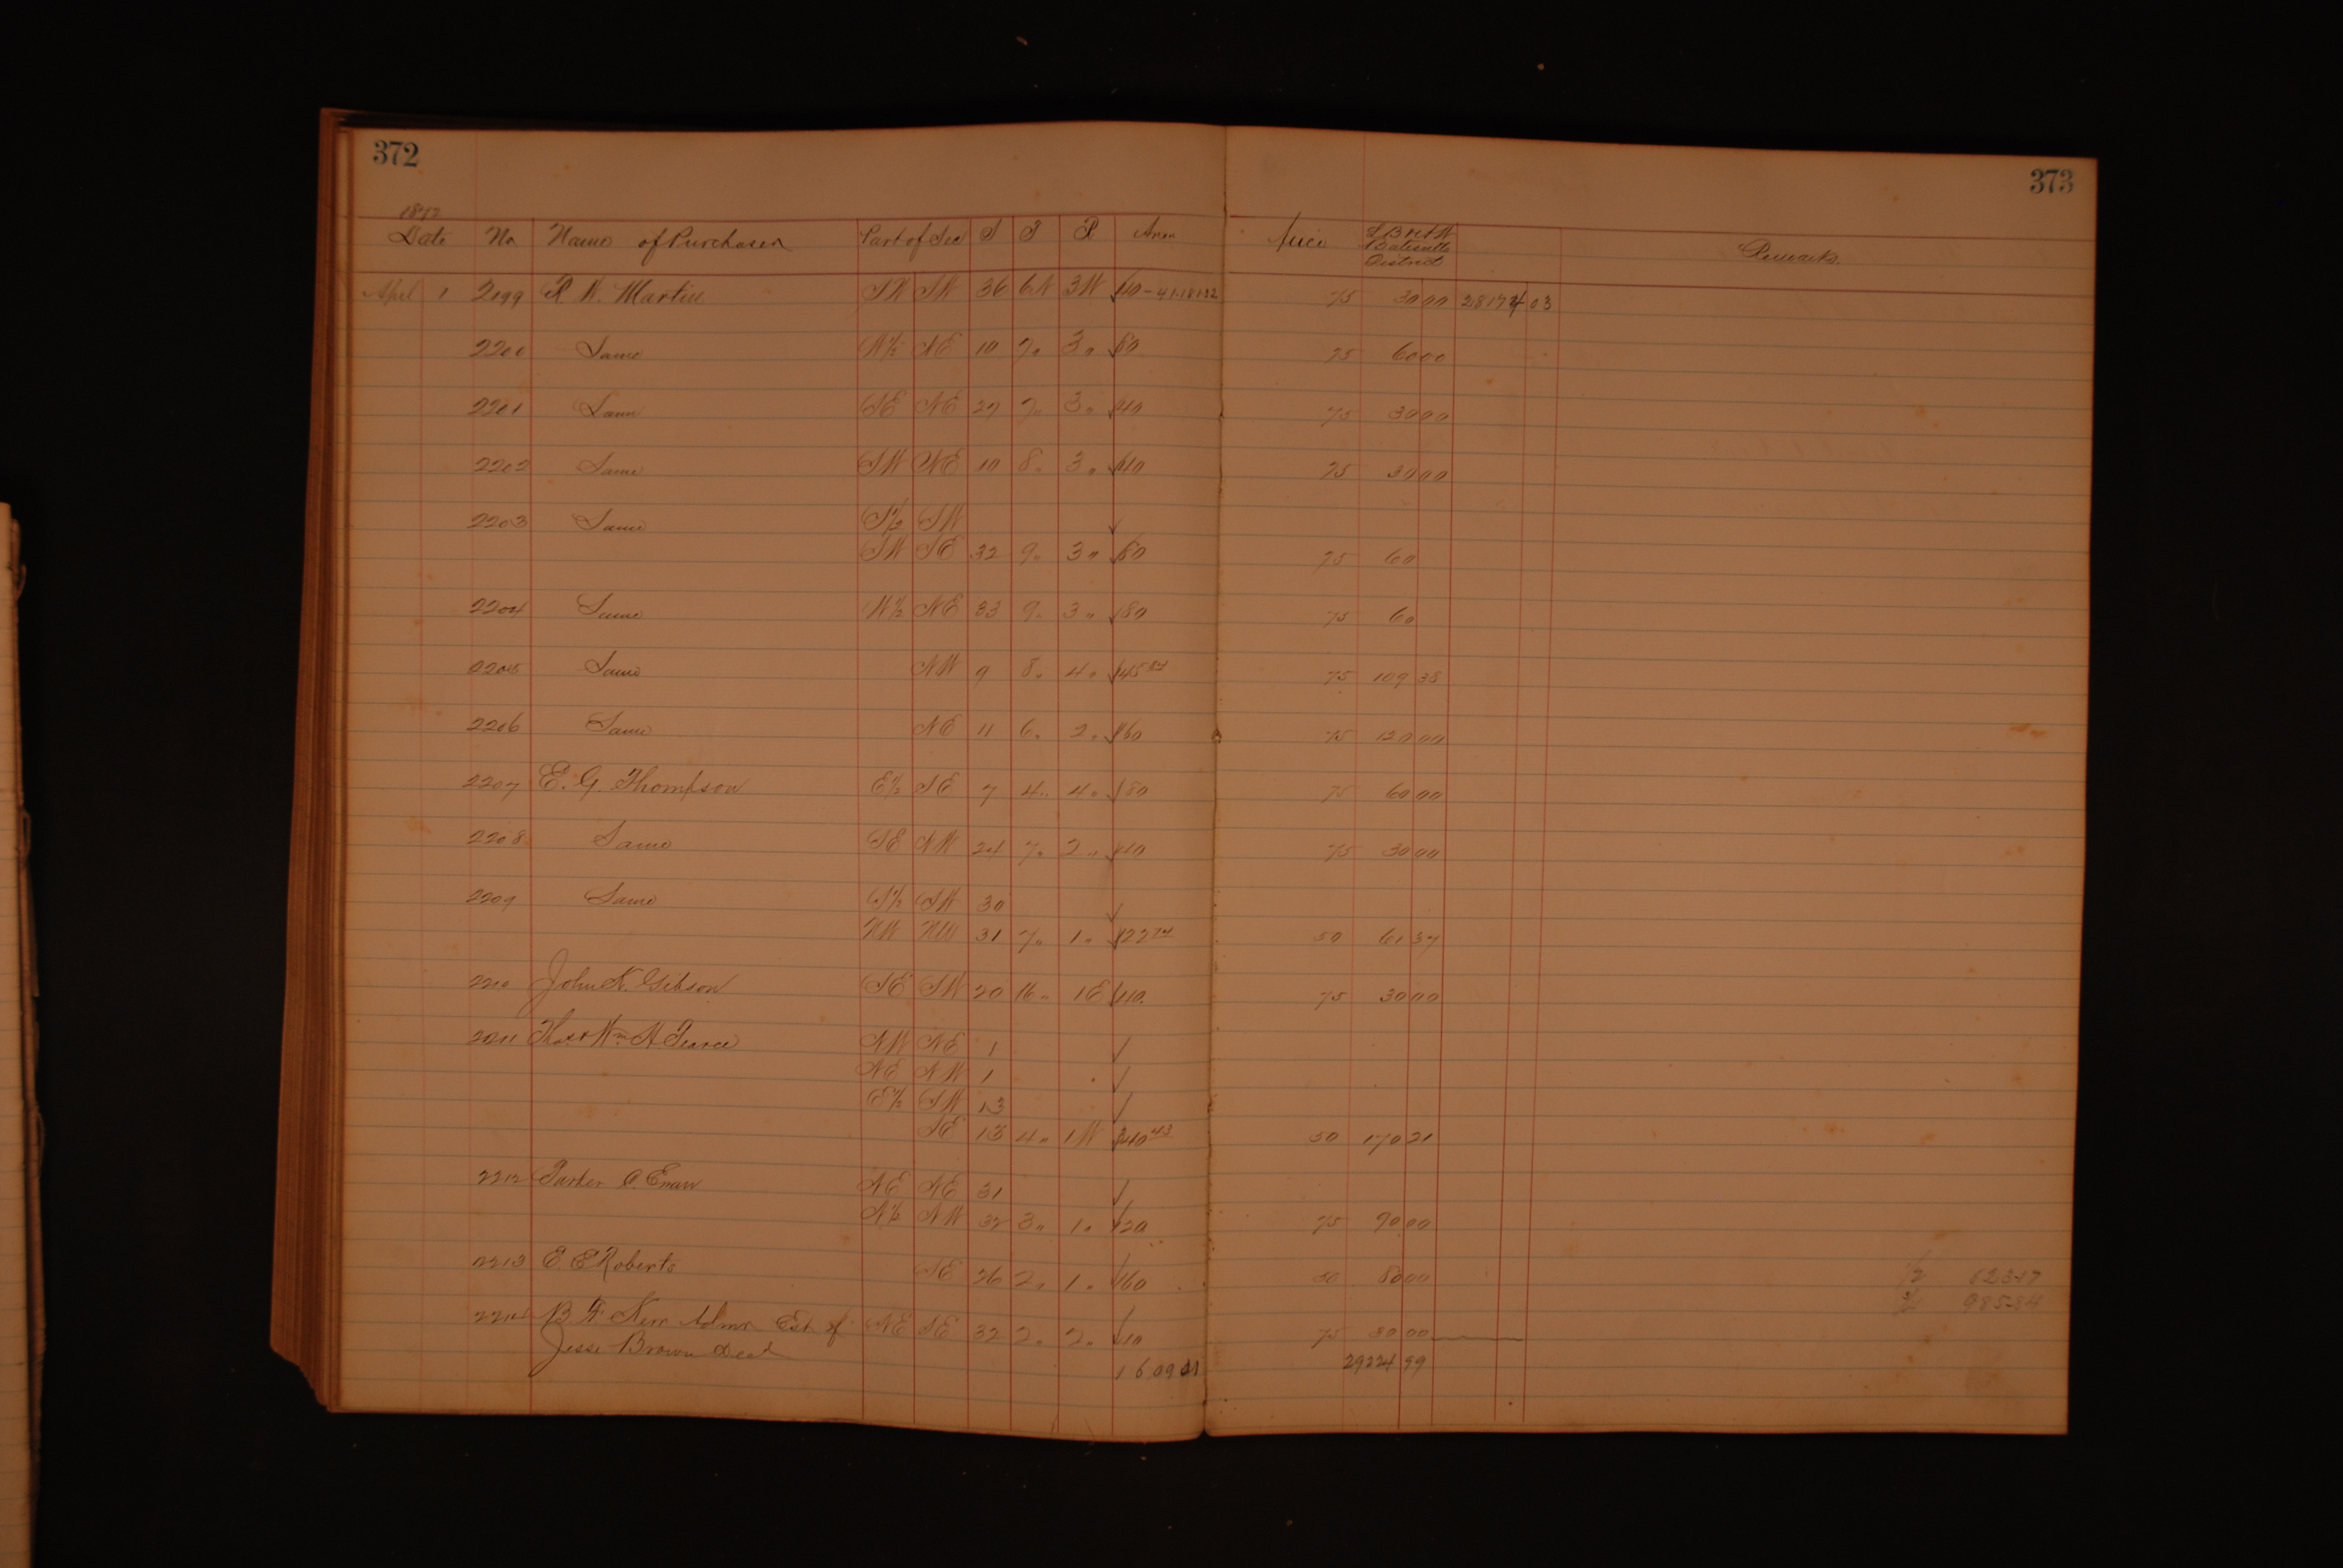 372
373
1872
Date No Name of Purchaser Part of Sec S T R Area Price Batesville District Remarks
April 1 2199 R W. Martin SW SW 36 6N 3W 40 75 30 00 28174 03
2200 Same N½ NE 10 7" 3" 80 75 60 00
2201 Same SE NE 27 7" 3" 40 75 30 00
2202 Same SW NE 10 8" 3" 40 75 30 00
2203 Same S½ SW
SW SE 32 9" 3" 80 75 60
2204 Same N½ NE 33 9" 3" 80 75 60
2205 Same NW 9 8" 4" 145 84 75 109 38
2206 Same NE 11 6" 2" 160 75 120 00
2207 E. G. Thompson E½ SE 7 4" 4" 80 75 60 00
2208 Same SE NW 24 7" 2" 40 75 30 00
2209 Same S½ SW 30
NW NW 31 7" 1" 122 74 50 61 37
2210 John N. Gibson SE SW 20 16" 1E 40 75 30 00
2211 Thos & Wm H. Pearce NW NE 1
NE NW 1
E½ SW 13
SE 13 4" 1W 340 43 50 170 21
2212 Parker C. NE NE 31
N½ NW 32 3" 1" 120 75 90 00
2213 E. E Roberts SE 26 2" 1" 160 50 80 00
2214 B. F. Kerr Admr Est of NE SE 32 2" 2" 40 75 30 00
Jesse Brown Decd
1609 01 29224 99